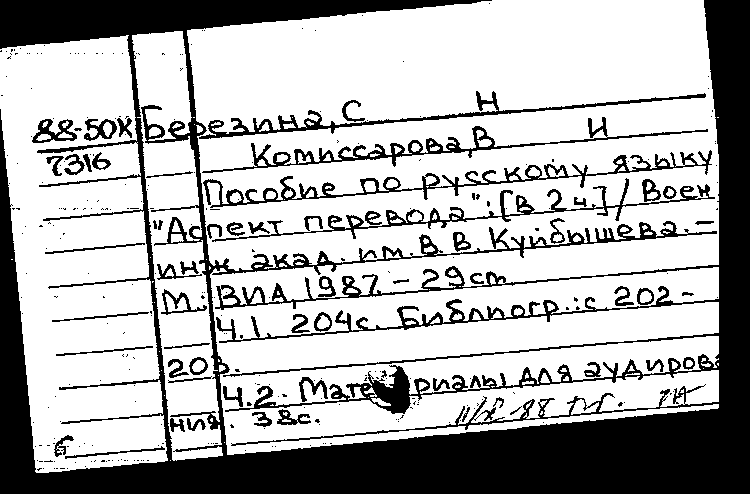 88-50К Березина, С Н
7316 Комиссарова, В И
Пособие по русскому языку
"Аспект перевода": [в 2 ч.] / Воен
инж. акад. им. В. В. Куйбышева. –
М.: ВИА, 1987. – 29 см.
Ч.1. 204с. Библиогр.: с 202 –
203.
Ч.2. Материалы для аудирова
ния. 38с.